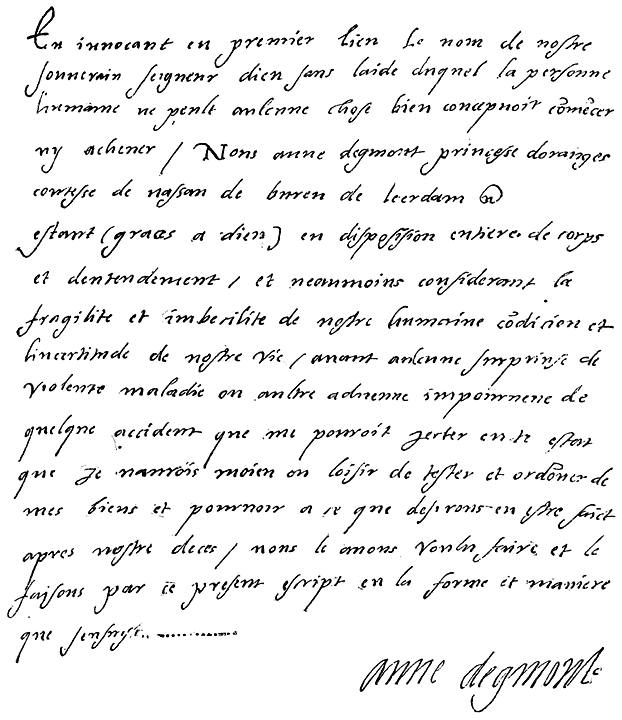 En invocant en premier lieu Le nom de nostre
souuerain seigneur dieu sans laide duquel la personne
humaine ne peult aulcune chose bien concepuoir cõmẽcer
ny acheuer / Nous anne degmont princesse doranges
contesse de nassau de buren de leerdam &
estant (graces a dieu) en disposision entiere de corps
et dentendement / et neaumoins considerant la
fragilite et imbecilite de nostre humaine cõdicion et
lincertitude de nostre vie / auant aulcune surprinse de
violente maladie ou aultre aduenue impourueue de
quelque accident que me pouroit Jecter en te estat
que Je naurois moien ou loisir de tester et ordõner de
mes biens et pouruoir a ce que desirons en estre faict
apres nostre deces / nous le auons voulu faire et le
faisons par ce present escript en la forme et maniere
que sensuyt..
anne degmont